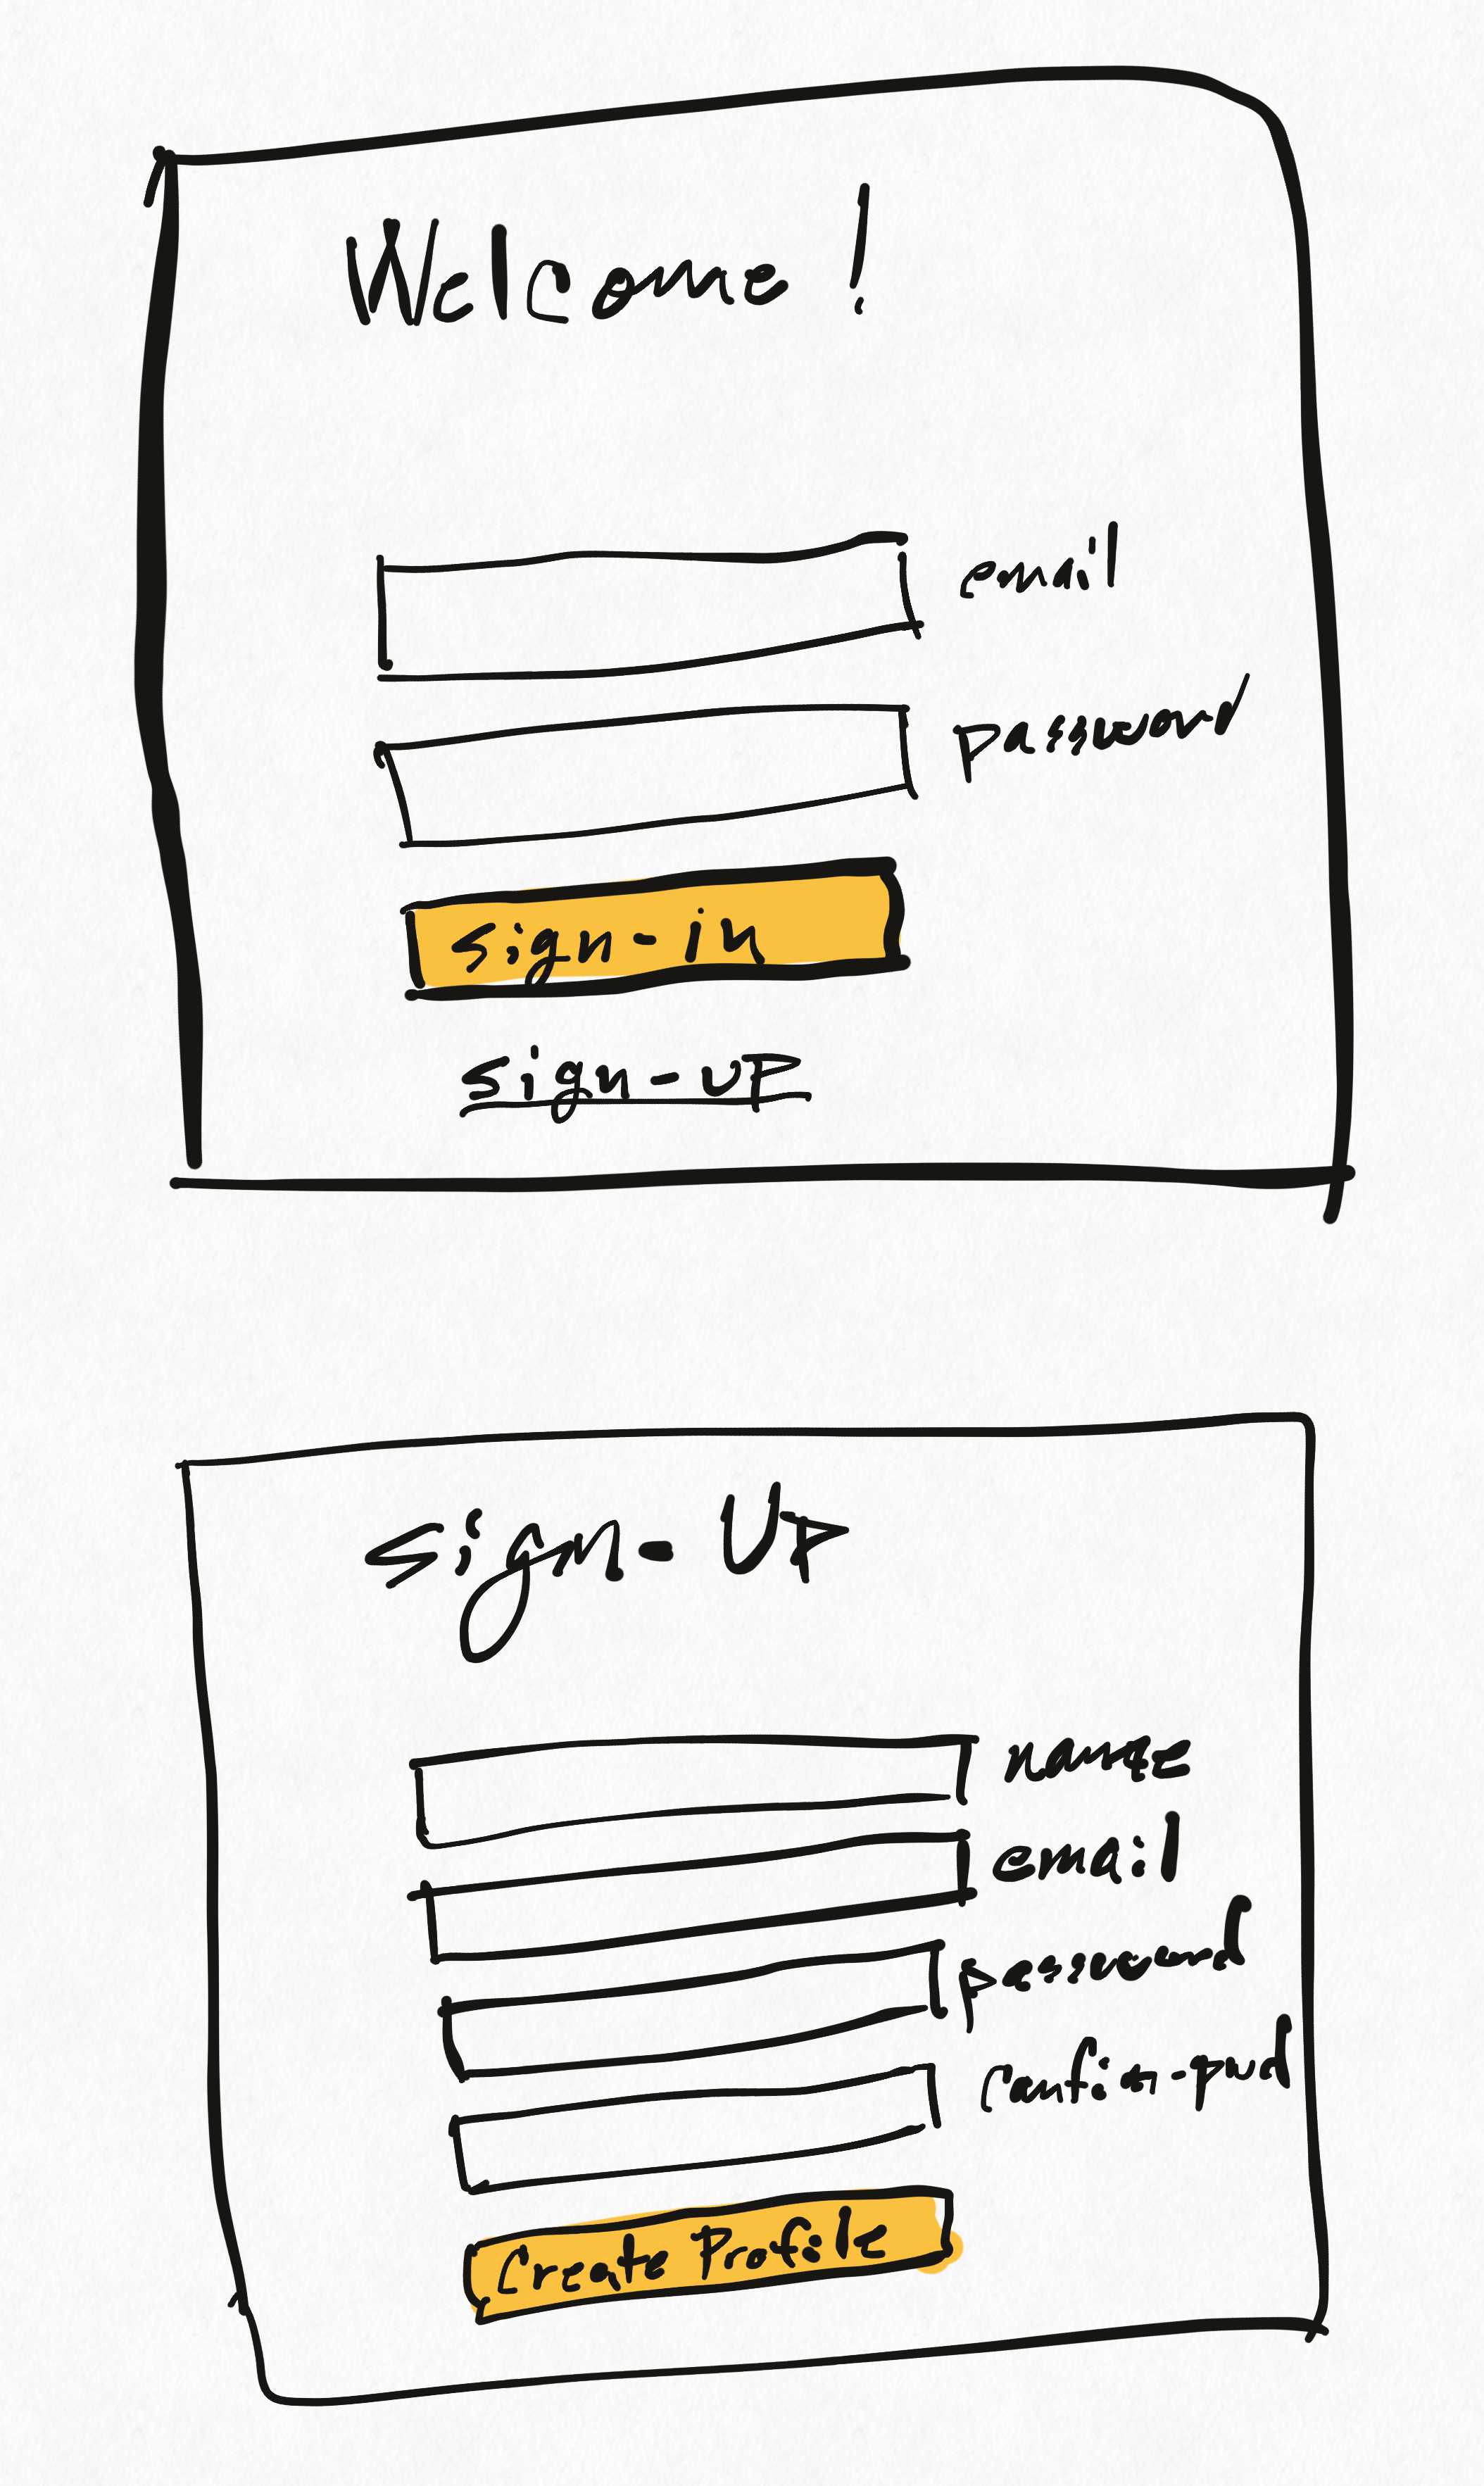 Welcome!
email
password
sign-in
sign-up
sign-UP
name
email
password
confim-pwd
Create Profile